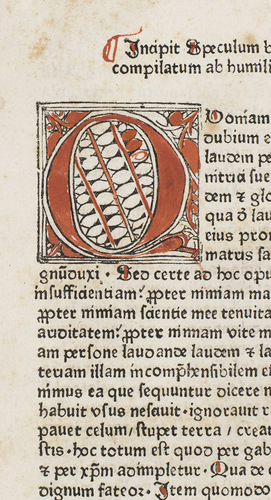 Incipit Speculum b
compilatum ab humili
Quoniam
dubium e
laudem pe
nitria sue
dem ⁊ glo
qua ō lau
eius pron
matrus sa
gnūduxi · Sed certe ad hoc opu
insufficientiam: ꝓpter nimiam ma
ꝓpter nimiam scientie mee tenuita
ariditatem: ꝓpter nimiam vite m
am persone laudande laudem ⁊ la
teriam illam incomp̄hensibilem ef
nimus ea que sequuntur dicere n
habuit vsus nesauit · ignorauit r
pauet celum / stupet terra / creat
stis · hoc totum est quod per gab
⁊ per xp̄m adimpletur · Qua de c
dignum fateor · Item quomodo